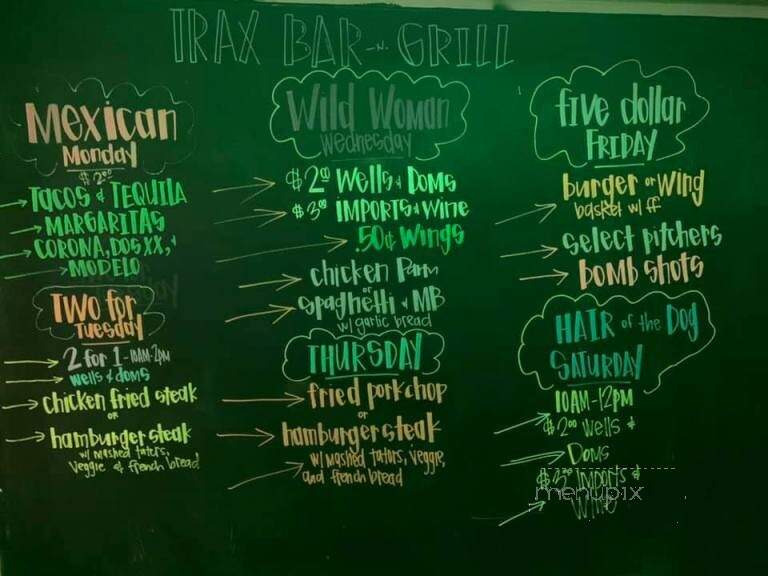 TRAX BAR -N- GRILL
Mexican
Monday
$2.00
TACOS & TEQUILA
MARGARITAS
CORONA, DOS XX, &
MODELO
TWO for
TUESDAY
2 for 1 - 10AM-2PM
wells & doms
chicken fried steak
or
hamburger steak
w/ mashed taters,
veggie & french bread
Wild Woman
Wednesday
$2.00 Wells & Doms
$3.00 IMPORTS & Wine
50¢ Wings
chicken Parm
or
spaghetti & MB
w/ garlic bread
THURSDAY
fried porkchop
or
hamburger steak
w/ mashed taters, veggie,
and french bread
five dollar
FRIDAY
burger or wing
basket w/ ff
select pitchers
bomb shots
HAIR of the Dog
SATURDAY
10AM-12PM
$2.00 Wells &
Doms
$3.00 Imports &
Wine
menupix